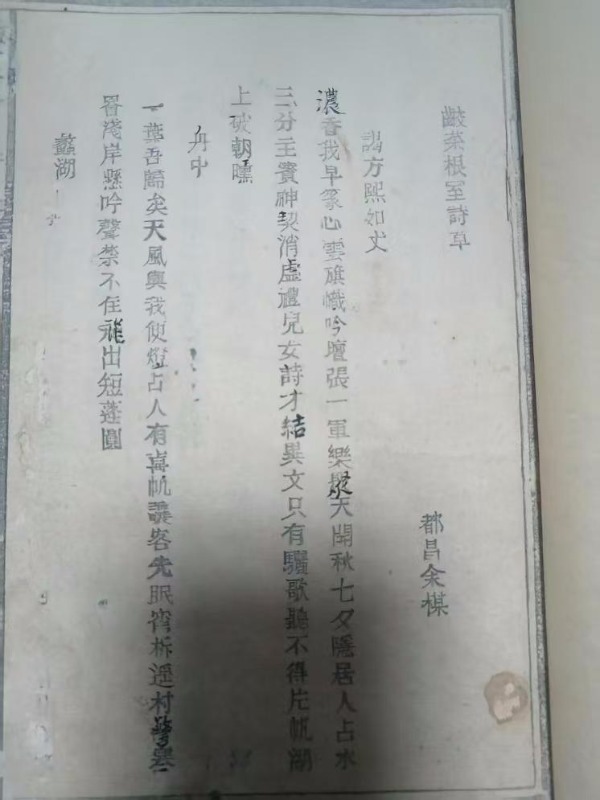 齩菜根室詩草
都昌余棋
謁方熙如丈
濃香我早篆心雲旗幟吟壇張一軍樂搬天開秋七夕隱居人占水
三分主賓神契消虛禮兒女詩才結異文只有驪歌聽不得片帆湖
上破朝曛
舟中
一葉吾歸矣天風與我便燈占人有喜帆讓客先眠宵柝遥村警寒
罾淺岸懸吟聲禁不住飛出短蓬圓
蠡湖